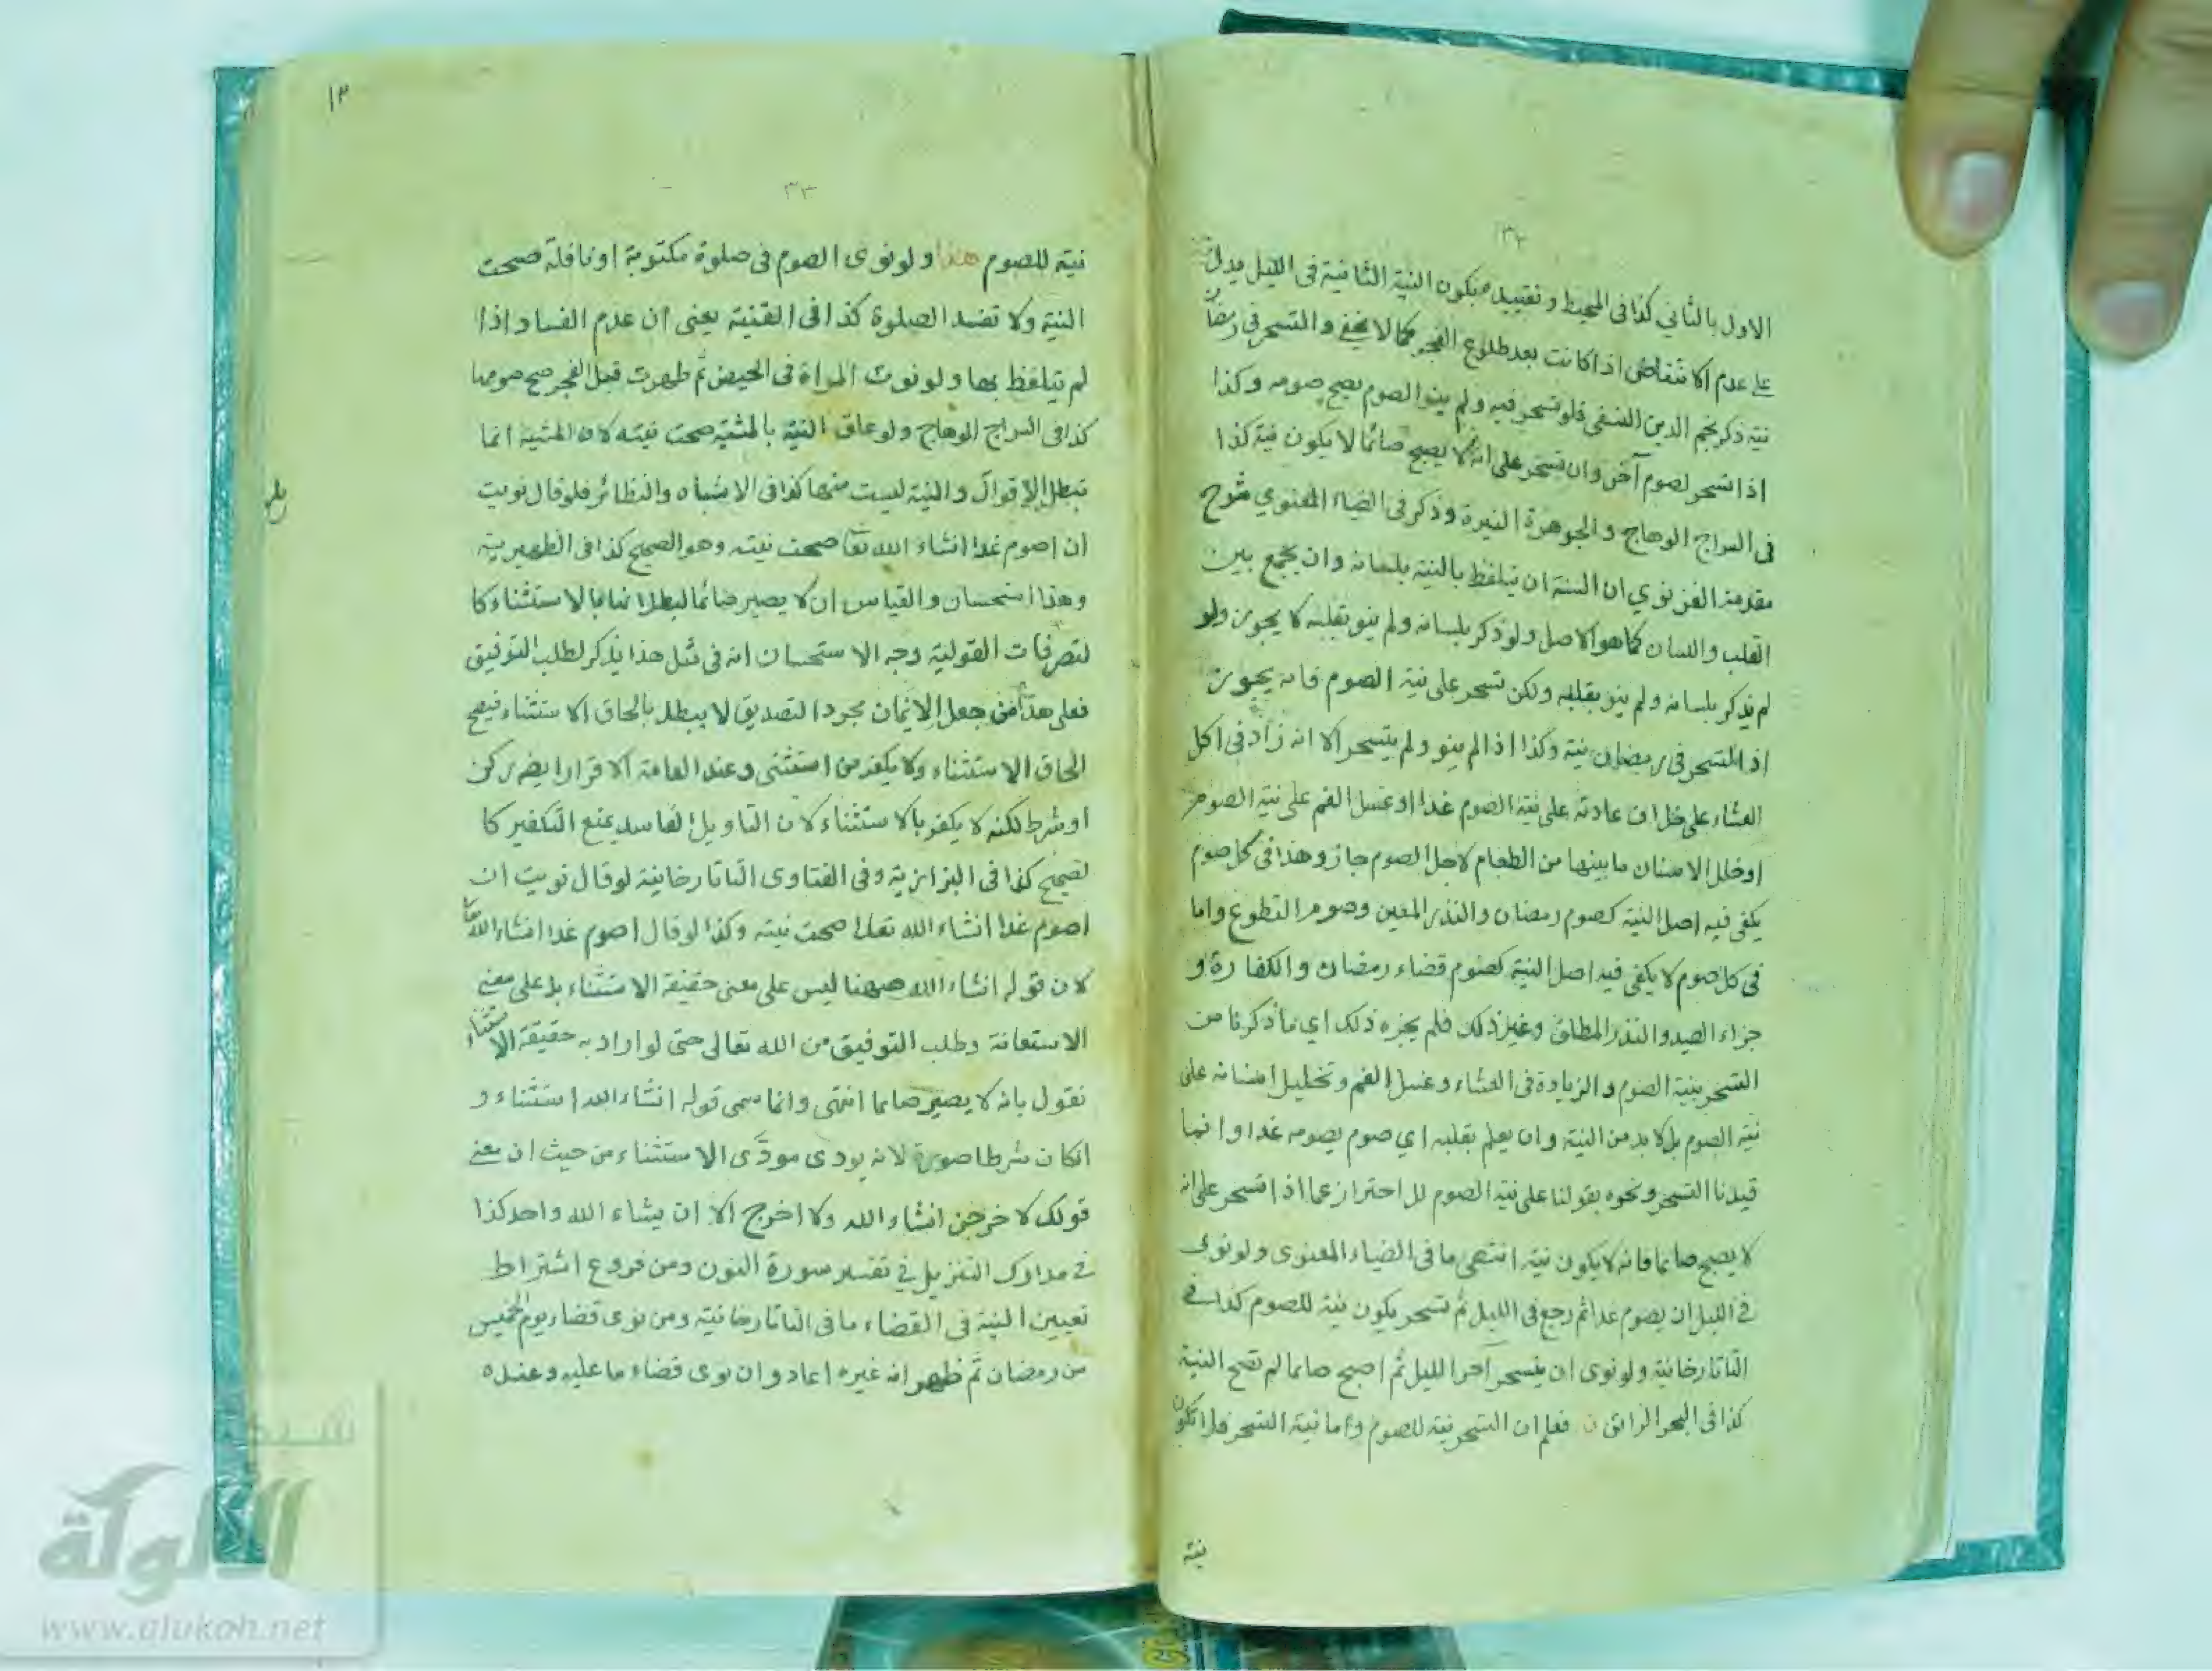 ٣٢
الاول بالثاني كذا في المحيط وتقييده بكون النية الثانية في الليل يدل
على عدم الانتقاض اذا كانت بعد طلوع الفجر كما لا يخفى والتسحر في رمضان
نية ذكر نجم الدين النسفى فلو تسحر فيه ولم ينو الصوم يصح صومه وكذا
اذا تسحر لصوم آخر وان تسحر على انه لا يصبح صائما لا يكون نية كذا
فى السراج الوهاج والجوهرة النيرة وذكر فى الضياء المعنوي شرح
مقدمة الغزنوي ان السنة ان يتلفظ بالنية بلسانه وان يجمع بين
القلب واللسان كما هو الاصل ولو ذكر بلسانه ولم ينو بقلبه لا يجوز ولو
لم يذكر بلسانه ولم ينو بقلبه ولكن تسحر على نية الصوم فانه يجوز
اذ التسحر فى رمضان نية وكذا اذا لم ينو ولم يتسحر الا انه زاد فى اكل
العشاء على خلاف عادته على نية الصوم غدا او غسل الفم على نية الصوم
او خلل الاسنان ما بينها من الطعام لاجل الصوم جاز وهذا فى كل صوم
يكفى فيه اصل النية كصوم رمضان والنذر المعين وصوم التطوع واما
فى كل صوم لا يكفى فيه اصل النية كصوم قضاء رمضان والكفارة و
جزاء الصيد والنذر المطلق وغير ذلك فلم يجزه ذلك اي ما ذكرنا من
التسحر بنية الصوم والزيادة فى العشاء وغسل الفم وتخليل اسنانه على
نية الصوم بل لا بد من النية وان يعلم بقلبه اي صوم يصومه غدا وانما
قيدنا التسحر ونحوه بقولنا على نية الصوم للاحتراز عما اذا تسحر على انه
لا يصبح صائما فانه لا يكون نية انتهى ما فى الضياء المعنوى ولو نوى
في الليل ان يصوم غدا ثم رجع فى الليل ثم تسحر يكون نية للصوم كذا في
التاتارخانية ولو نوى ان يتسحر آخر الليل ثم اصبح صائما لم تصح النية
كذا فى البحر الرائق فعلم ان التسحر نية للصوم واما نية التسحر فلا تكون
نية
١٣
٣٣
نية للصوم هذا ولو نوى الصوم فى صلوة مكتوبة او نافلة صحت
النية ولا تفسد الصلوة كذا فى القنية يعنى ان عدم الفساد اذا
لم يتلفظ بها ولو نوت المراة فى الحيض ثم طهرت قبل الفجر صح صومها
كذا فى السراج الوهاج ولو علق النية بالمشية صحت نيته لان المشية انما
تبطل الاقوال والنية ليست منها كذا فى الاشباه والنظائر فلو قال نويت
ان اصوم غدا انشاء الله تعا صحت نيته وهو الصحيح كذا فى الظهيرية
وهذا استحسان والقياس ان لا يصير صائما لبطلانها بالاستثناء كا
لتصرفات القولية وجه الاستحسان انه فى مثل هذا يذكر لطلب التوفيق
فعلى هذا من جعل الايمان مجرد التصديق لا يبطل بالحاق الاستثناء فيصح
الحاق الاستثناء ولا يكفر من استثنى وعند العامة الاقرار ايضر ركن
او شرط لكنه لا يكفر بالاستثناء لان التاويل الفاسد يمنع التكفير كا
لصحيح كذا فى البزازية وفى الفتاوى التاتارخانية لو قال نويت ان
اصوم غدا انشاء الله تعالى صحت نيته وكذا لو قال اصوم غدا انشاء الله تعا
لان قوله انشاء الله ههنا ليس على معنى حقيقة الاستثناء بل على معنى
الاستعانة وطلب التوفيق من الله تعالى حتى لو اراد به حقيقة الاستثناء
نقول بانه لا يصير صايما انتهى وانما سمى قوله انشاء الله استثناء و
انكان شرطا صورة لانه يودى مودّى الاستثناء من حيث ان معنى
قولك لاخرجن انشاء الله ولا اخرج الا ان يشاء الله واحد كذا
في مدارك التنزيل في تفسير سورة النون ومن فروع اشتراط
تعيين النية فى القضاء ما فى التاتارخانية ومن نوى قضاء يوم الخميس
من رمضان ثم ظهر انه غيره اعاد وان نوى قضاء ما عليه وعنده
شبكة
الألوكة
www.alukah.net